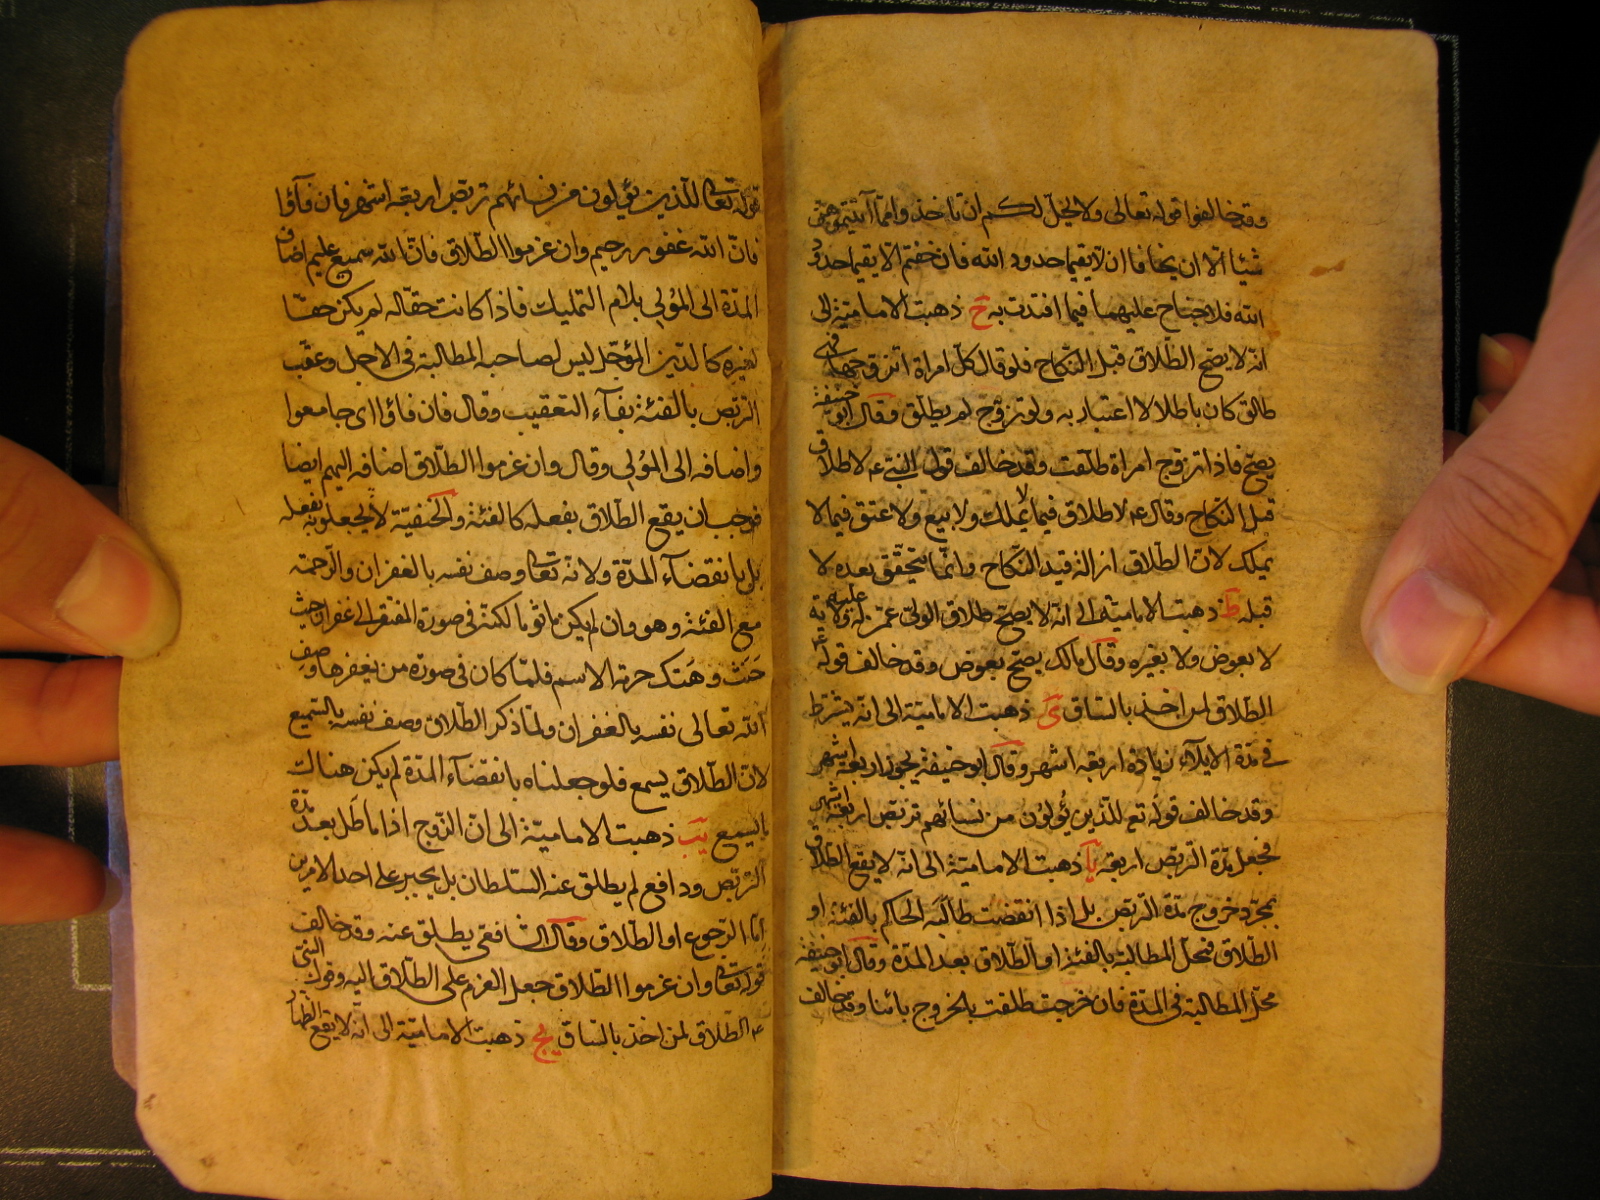 وقد خالفوا قوله تعالى ولا يحل لكم ان تاخذوا مما آتيتموهن
شيئا الا ان يخافا ان لا يقيما حدود الله فان خفتم الا يقيما حدود
الله فلا جناح عليهما فيما افتدت به ح ذهبت الامامية الى
انه لا يصح الطلاق قبل النكاح فلو قال كل امراة اتزوجها فهي
طالق كان باطلا لا اعتبار به ولو تزوج لم يطلق وقال ابو حنيفة
يصح فاذا تزوج امراة طلقت وقد خالف قول النبي عم لا طلاق
قبل النكاح وقال عم لا طلاق فيما لا يملك ولا بيع ولا عتق فيما لا
يملك لان الطلاق ازالة قيد النكاح وانما يتحقق بعده لا
قبله ط ذهبت الامامية الى انه لا يصح طلاق الولي عمن له عليه ولاية
لا بعوض ولا بغيره وقال مالك يصح بعوض وقد خالف قوله عم
الطلاق لمن اخذ بالساق ى ذهبت الامامية الى انه يشترط
في مدة الايلاء زيادة اربعة اشهر وقال ابو حنيفة يجوز اربعة اشهر
وقد خالف قوله تع للذين يؤلون من نسائهم تربص اربعة اشهر
فجعل مدة التربص اربعة يا ذهبت الامامية الى انه لا يقع الطلاق
بمجرد خروج مدة التربص بل اذا انقضت طالبه الحاكم بالفئة او
الطلاق فمحل المطالبة بالفئة او الطلاق بعد المدة وقال ابو حنيفة
محل المطالبة في المدة فان خرجت طلقت بالخروج بائنا وقد خالف
قوله تعالى للذين يؤلون من نسائهم تربص اربعة اشهر فان فآؤا
فان الله غفور رحيم وان عزموا الطلاق فان الله سميع عليم اضاف
المدة الى المؤلى بلام التمليك فاذا كانت حقا له لم يكن حقا
لغيره كالدين المؤجل ليس لصاحبه المطالبة في الاجل وعقب
التربص بالفئة بفآء التعقيب وقال فان فاؤا اى جامعوا
واضافه الى المؤلى وقال وان عزموا الطلاق اضافه اليهم ايضا
فوجب ان يقع الطلاق بفعله كالفئة والحنفية لا يجعلونه بفعله
بل بانقضآء المدة ولانه تعالى وصف نفسه بالغفران والرحمة
مع الفئة وهو وان لم يكن ماثوما لكنه في صورة المفتقر الى غفران حيث
حنث وهتك حرمة الاسم فلما كان في صورة من يغفر له وصف
الله تعالى نفسه بالغفران ولما ذكر الطلاق وصف نفسه بالسميع
لان الطلاق يسمع فلو جعلناه بانقضآء المدة لم يكن هناك
ما يسمع يب ذهبت الامامية الى ان الزوج اذا ماطل بعد مدة
التربص ودافع لم يطلق عنه السلطان بل يجبر على احد الامرين
اما الرجوع او الطلاق وقال الشافعي يطلق عنه وقد خالف
قوله تعالى وان عزموا الطلاق جعل العزم على الطلاق اليه وقول النبي
عم الطلاق لمن اخذ بالساق يج ذهبت الامامية الى انه لا يقع الظهار